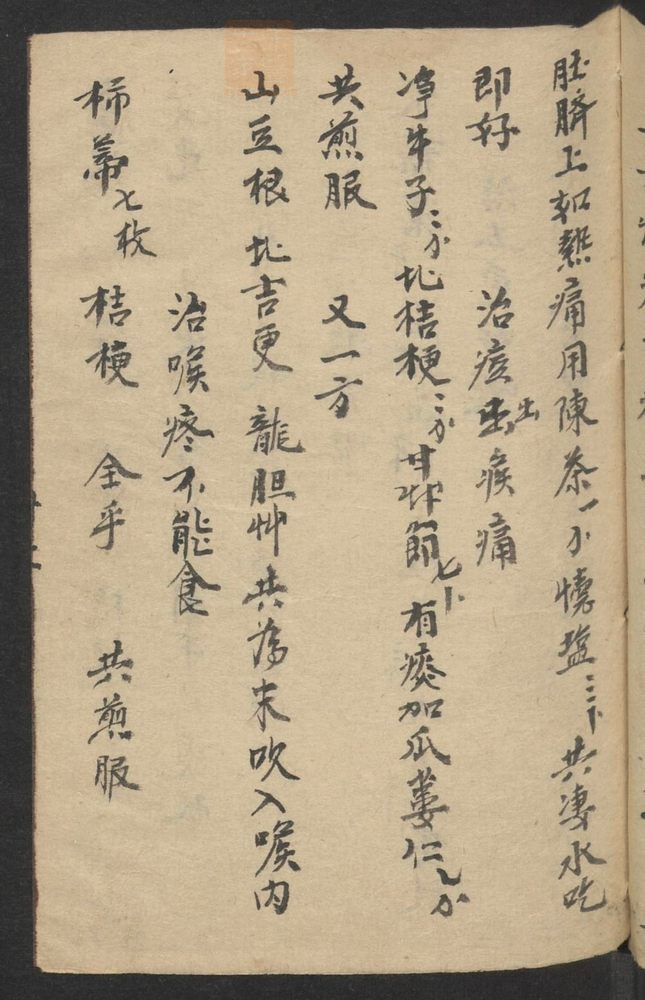 肚臍上如熱痛用陳茶一小 塩三卜共凄水吃
即好 治痘出喉痛
淨牛子三分北桔梗三分甘艸節七卜有痰加瓜蔞仁七分
共煎服 又一方
山豆根北吉更龍胆艸共為末吹入喉内
治喉疼不能食
柿蒂七枚 桔梗 全乎 共煎服